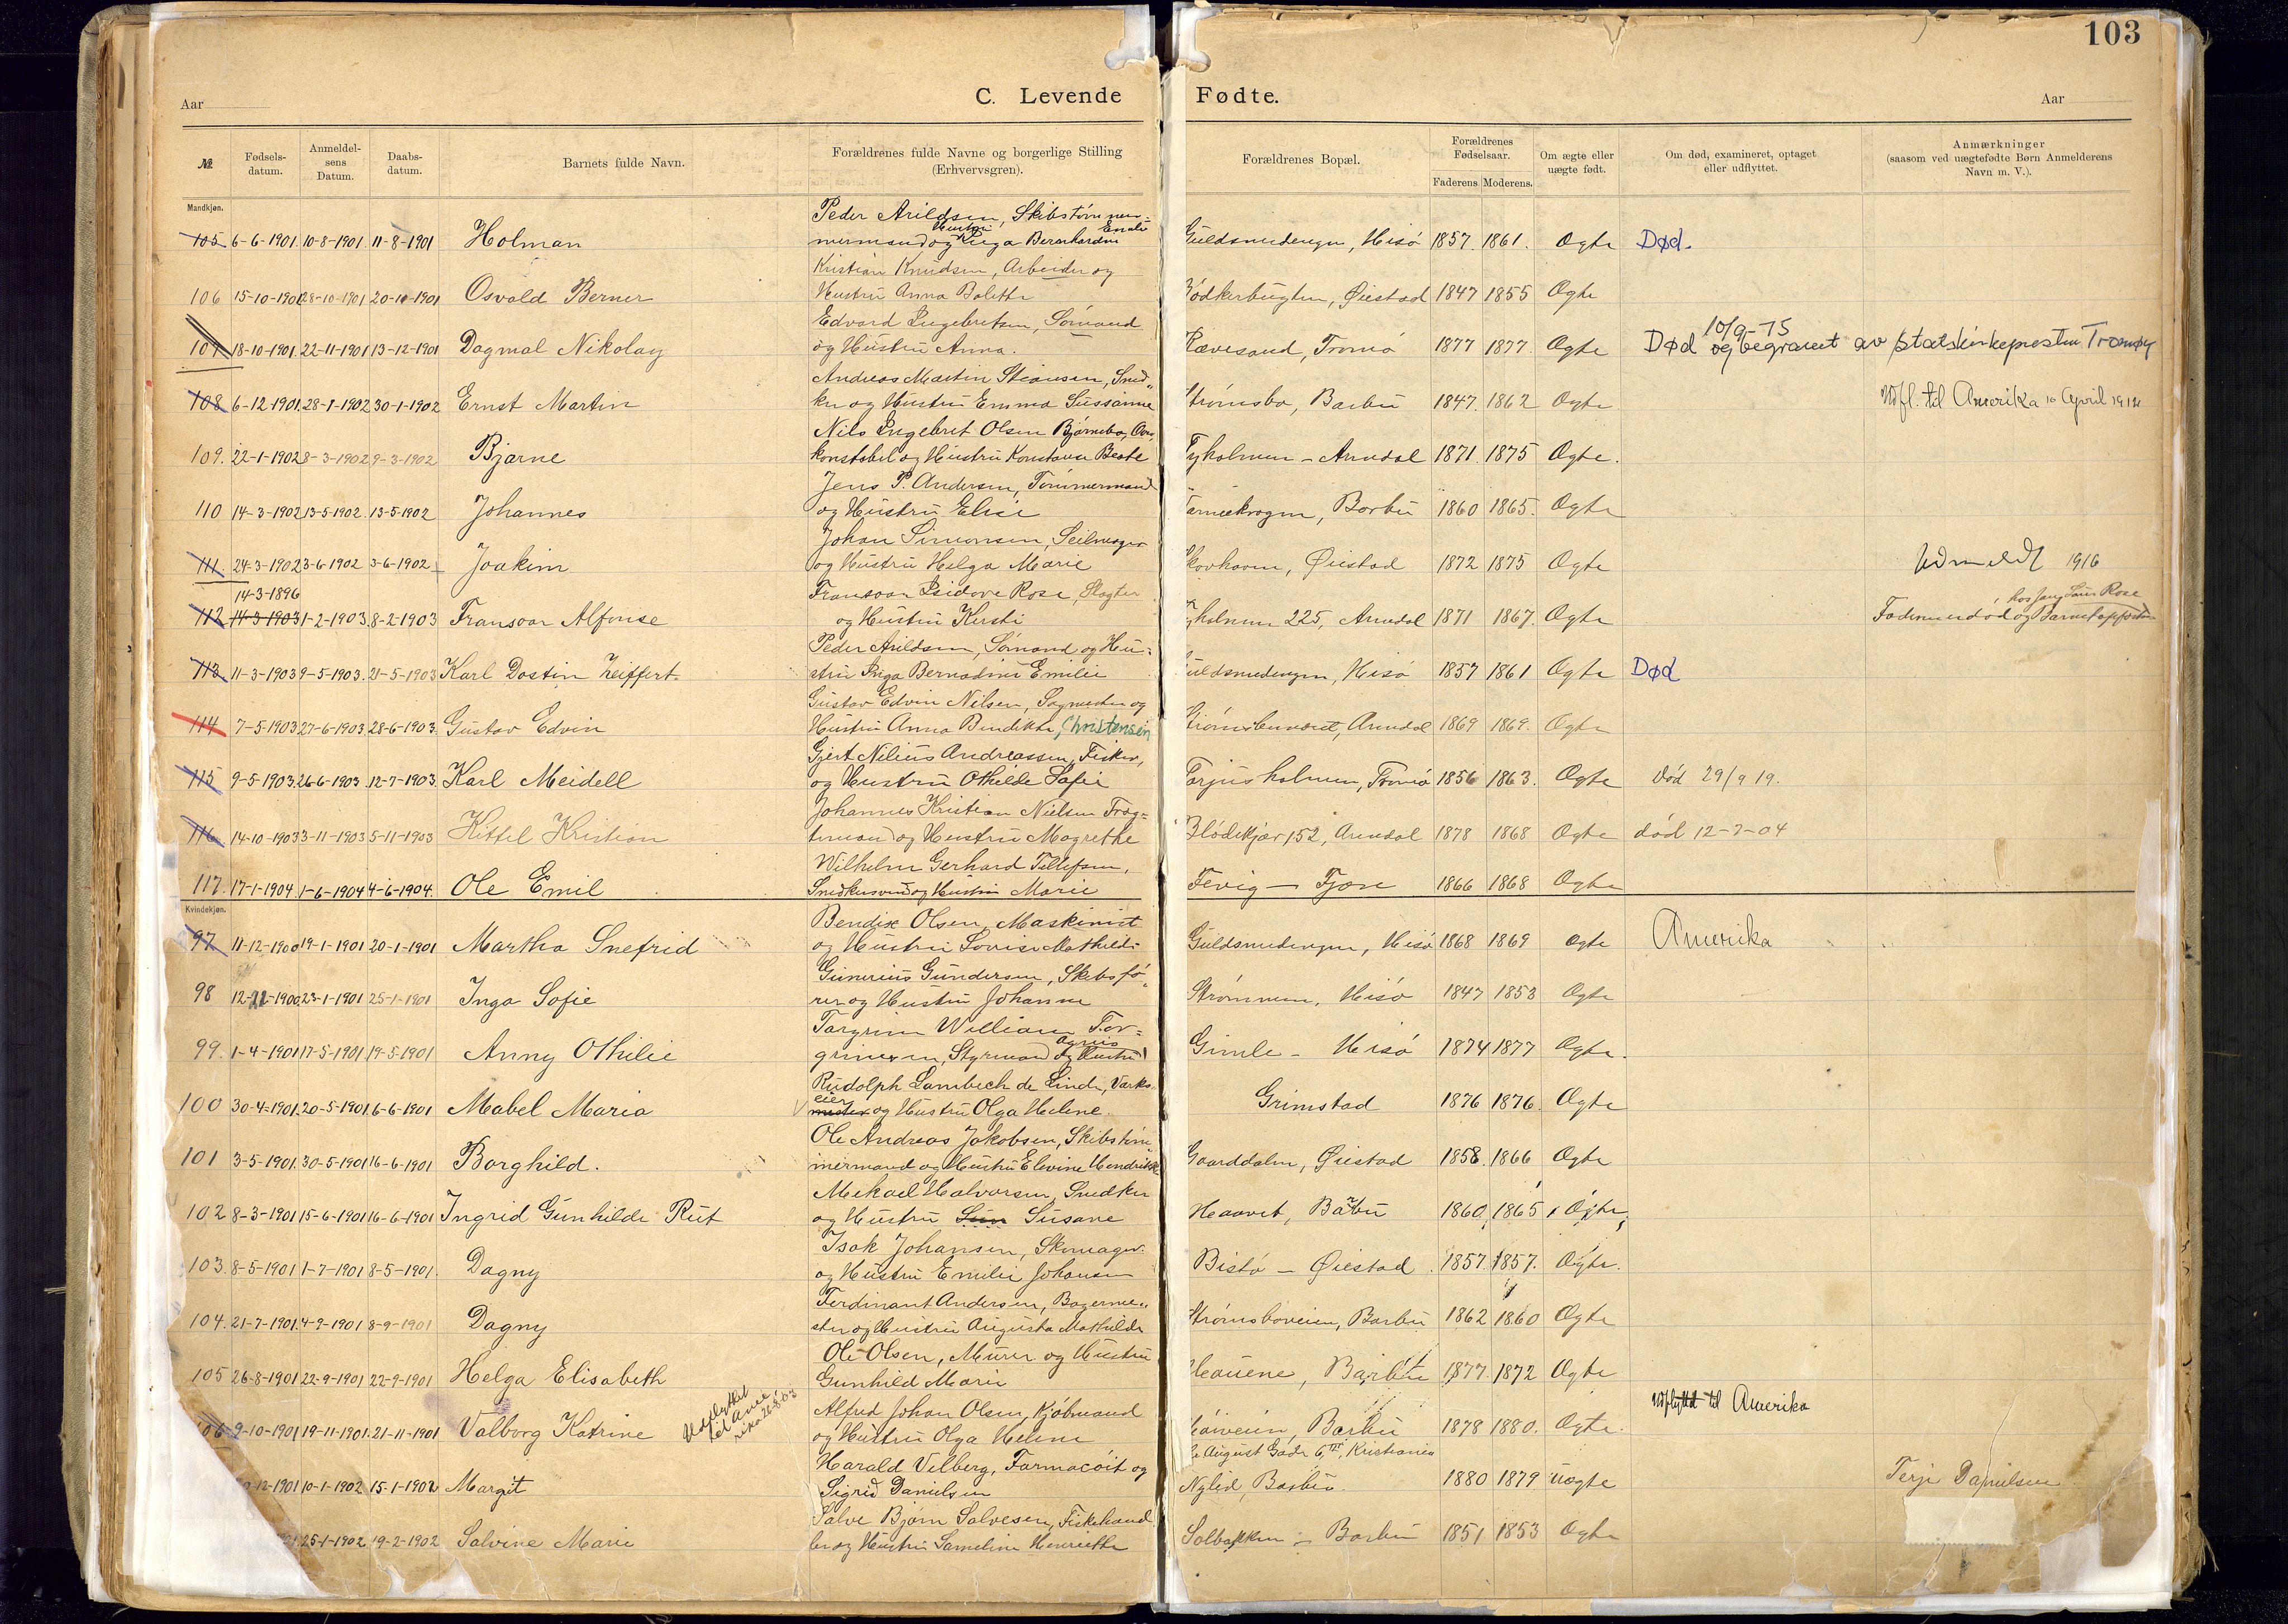 103
Aar
C. Levende Fødte.
Aar
№ Fødsels-datum. Anmeldel-sens Datum. Daabs-datum. Barnets fulde Navn. Forældrenes fulde Navne og borgerlige Stilling (Erhvervsgren). Forældrenes Bopæl. Forældrenes Fødselsaar. Faderens Moderens. Om ægte eller uægte født. Om død, examineret, optaget eller udflyttet. Anmærkninger (saasom ved uægtefødte Børn Anmelderens Navn m. V.).
Mandkjøn.
Peder Arildsen, Skibstøm
105 6-6-1901. 10-8-1901. 11-8-1901 Holman mermand og Hustru Inga Bernhardine Emilie Guldsmedengen, Hisø 1857. 1861. Ægte Død.
Kristian Knudsen, Arbeider og
106 15-10-1901 28-10-1901 20-10-1901 Osvald Berner Hustru Anna Bolette Bødkerbugten, Øiestad 1847 1855 Ægte
Edvard Ingebretsen, Sømand
107 18-10-1901. 22-11-1901 13-12-1901 Dagmal Nikolay og Hustru Anna. Rævesand, Tromø 1877 1877 Ægte Død 10/9-75 og begravet av statskirkepresten Tromøy
Andreas Martin Stiansen, Sned„
108 6-12-1901. 28-1-1902 30-1-1902 Ernst Martin ker og Hustru Emma Sussanne Strømsbo, Barbu 1847. 1862 Ægte Udfl. til Amerika 10 April 1912
Nils Ingebret Olsen Bjørnebo, Over
109. 22-1-1902 8-3-1902 9-3-1902 Bjarne konstabel og Hustru Konstanse Beate Tyholmen - Arendal 1871. 1875 Ægte.
Jens P. Andersen, Tømmermand
110 14-3-1902 13-5-1902. 13-5-1902 Johannes og Hustru Elise Barbu 1860 1865. Ægte
Johan Simonsen, Seilmager
111. 24-3-1902 3-6-1902 3-6-1902 Joakim og Hustru Helga Marie Skovhaven, Øiestad 1872 1875 Ægte Udmeldt 1916
14-3-1896 Fransoar Isidore Rose, Slagter hos Jane Rose
112 14-3-1903 1-2-1903. 8-2-1903 Fransoar Alfonse og Hustru Kersti Tyholmen 225, Arendal 1871 1867. Ægte Faderen er død og Barnet opfostres
Peder Arildsen, Sømand og Hu-
113 11-3-1903 9-5-1903. 21-5-1903 Karl Dostin Zeiffert. stru Inga Bernadine Emilie Guldsmedengen, Hisø 1857 1861 Ægte Død
Gustav Edvin Nilsen, Sagmester og
114 7-5-1903 27-6-1903. 28-6-1903. Gustav Edvin Hustru Anna Bendikke, Christensen Strømsbuneset, Arendal 1869 1869. Ægte
Gjert Nilius Andreassen, Fisker,
115 9-5-1903. 26-6-1903. 12-7-1903. Karl Meidell og Hustru Othilde Sofie Torjusholmen, Tromø 1856 1863. Ægte Død 29/9 19.
Johannes Kristian Nielsen Frag-
116 14-10-1903 3-11-1903 5-11-1903 Kittel Kristian temand og Hustru Magrethe Blødekjær 152, Arendal 1878 1868 Ægte død 12-7-04
Wilhelm Gerhard Tellefsen,
117. 17-1-1904. 1-6-1904 4-6-1904. Ole Emil Snedkersvend og Hustru Marie Fevig - Fjære 1866 1868 Ægte
Kvindekjøn.
Bendix Olsen, Maskinist
97 11-12-1900 19-1-1901 20-1-1901 Martha Snefrid og Hustru Lovise Mathilde Guldsmedengen, Hisø 1868 1869 Ægte Amerika
Gunerius Gundersen, Skibsfø-
98 12-12-1900 23-1-1901 25-1-1901 Inga Sofie rer og Hustru Johanne Strømmen, Hisø 1847 1853 Ægte
Torgrim William Tor-
99. 1-4-1901 17-5-1901. 19-5-1901 Anny Othilie grimsen, Styrmand og Hustru Agnes Gimle - Hisø 1874 1877 Ægte.
Rudolph Lambech de Linde, Værks
100 30-4-1901. 20-5-1901. 6-6-1901 Mabel Maria eier og Hustru Olga Helene. Grimstad 1876 1876. Ægte
Ole Andreas Jakobsen, Skibstøm
101 3-5-1901. 30-5-1901 16-6-1901 Borghild. mermand og Hustru Elevine Hendrikke Gaarddalen, Øiestad 1858. 1866 Ægte
Mekael Halvorsen, Snedker
102 8-3-1901 15-6-1901 16-6-1901 Ingrid Gunhilde Rut og Hustru Sun Susane Heaavet, Barbu 1860 1865 Ægte
Isak Johansen, Skomager.
103. 8-5-1901 1-7-1901 8-5-1901. Dagny og Hustru Emilie Johansen Bistø - Øiestad. 1857. 1857. Ægte.
Ferdinant Andersen, Bagerme„
104. 21-7-1901. 4-9-1901 8-9-1901 Dagny ster og Hustru Augusta Mathilde Strømsboveien, Barbu 1862 1860 Ægte
Ole Olsen, Murer og Hustru
105 26-8-1901 22-9-1901 22-9-1901 Helga Elisabeth Gunhild Marie Barbu 1877. 1872 Ægte
Alfred Johan Olsen, Kjøbmand Udflyttet til Amerika
106 9-10-1901 19-11-1901. 21-11-1901 Valborg Katrine Udflyttet til Amerika 26-8-03 og Hustru Olga Helene Barbu 1878 1880. Ægte.
Harald Velberg, Farmacøit og August Gade 6, Kristiania
12-1901 10-1-1902 15-1-1902 Margit Sigrid Danielsen Nylid, Barbu. 1880 1879 uægte Terje Danielsen
Salve Bjørn Salvesen, Fiskehand
25-1-1902 19-2-1902 Salvine Marie ler og Hustru Sameline Henriette Solbakken - Barbu 1851 1853 Ægte